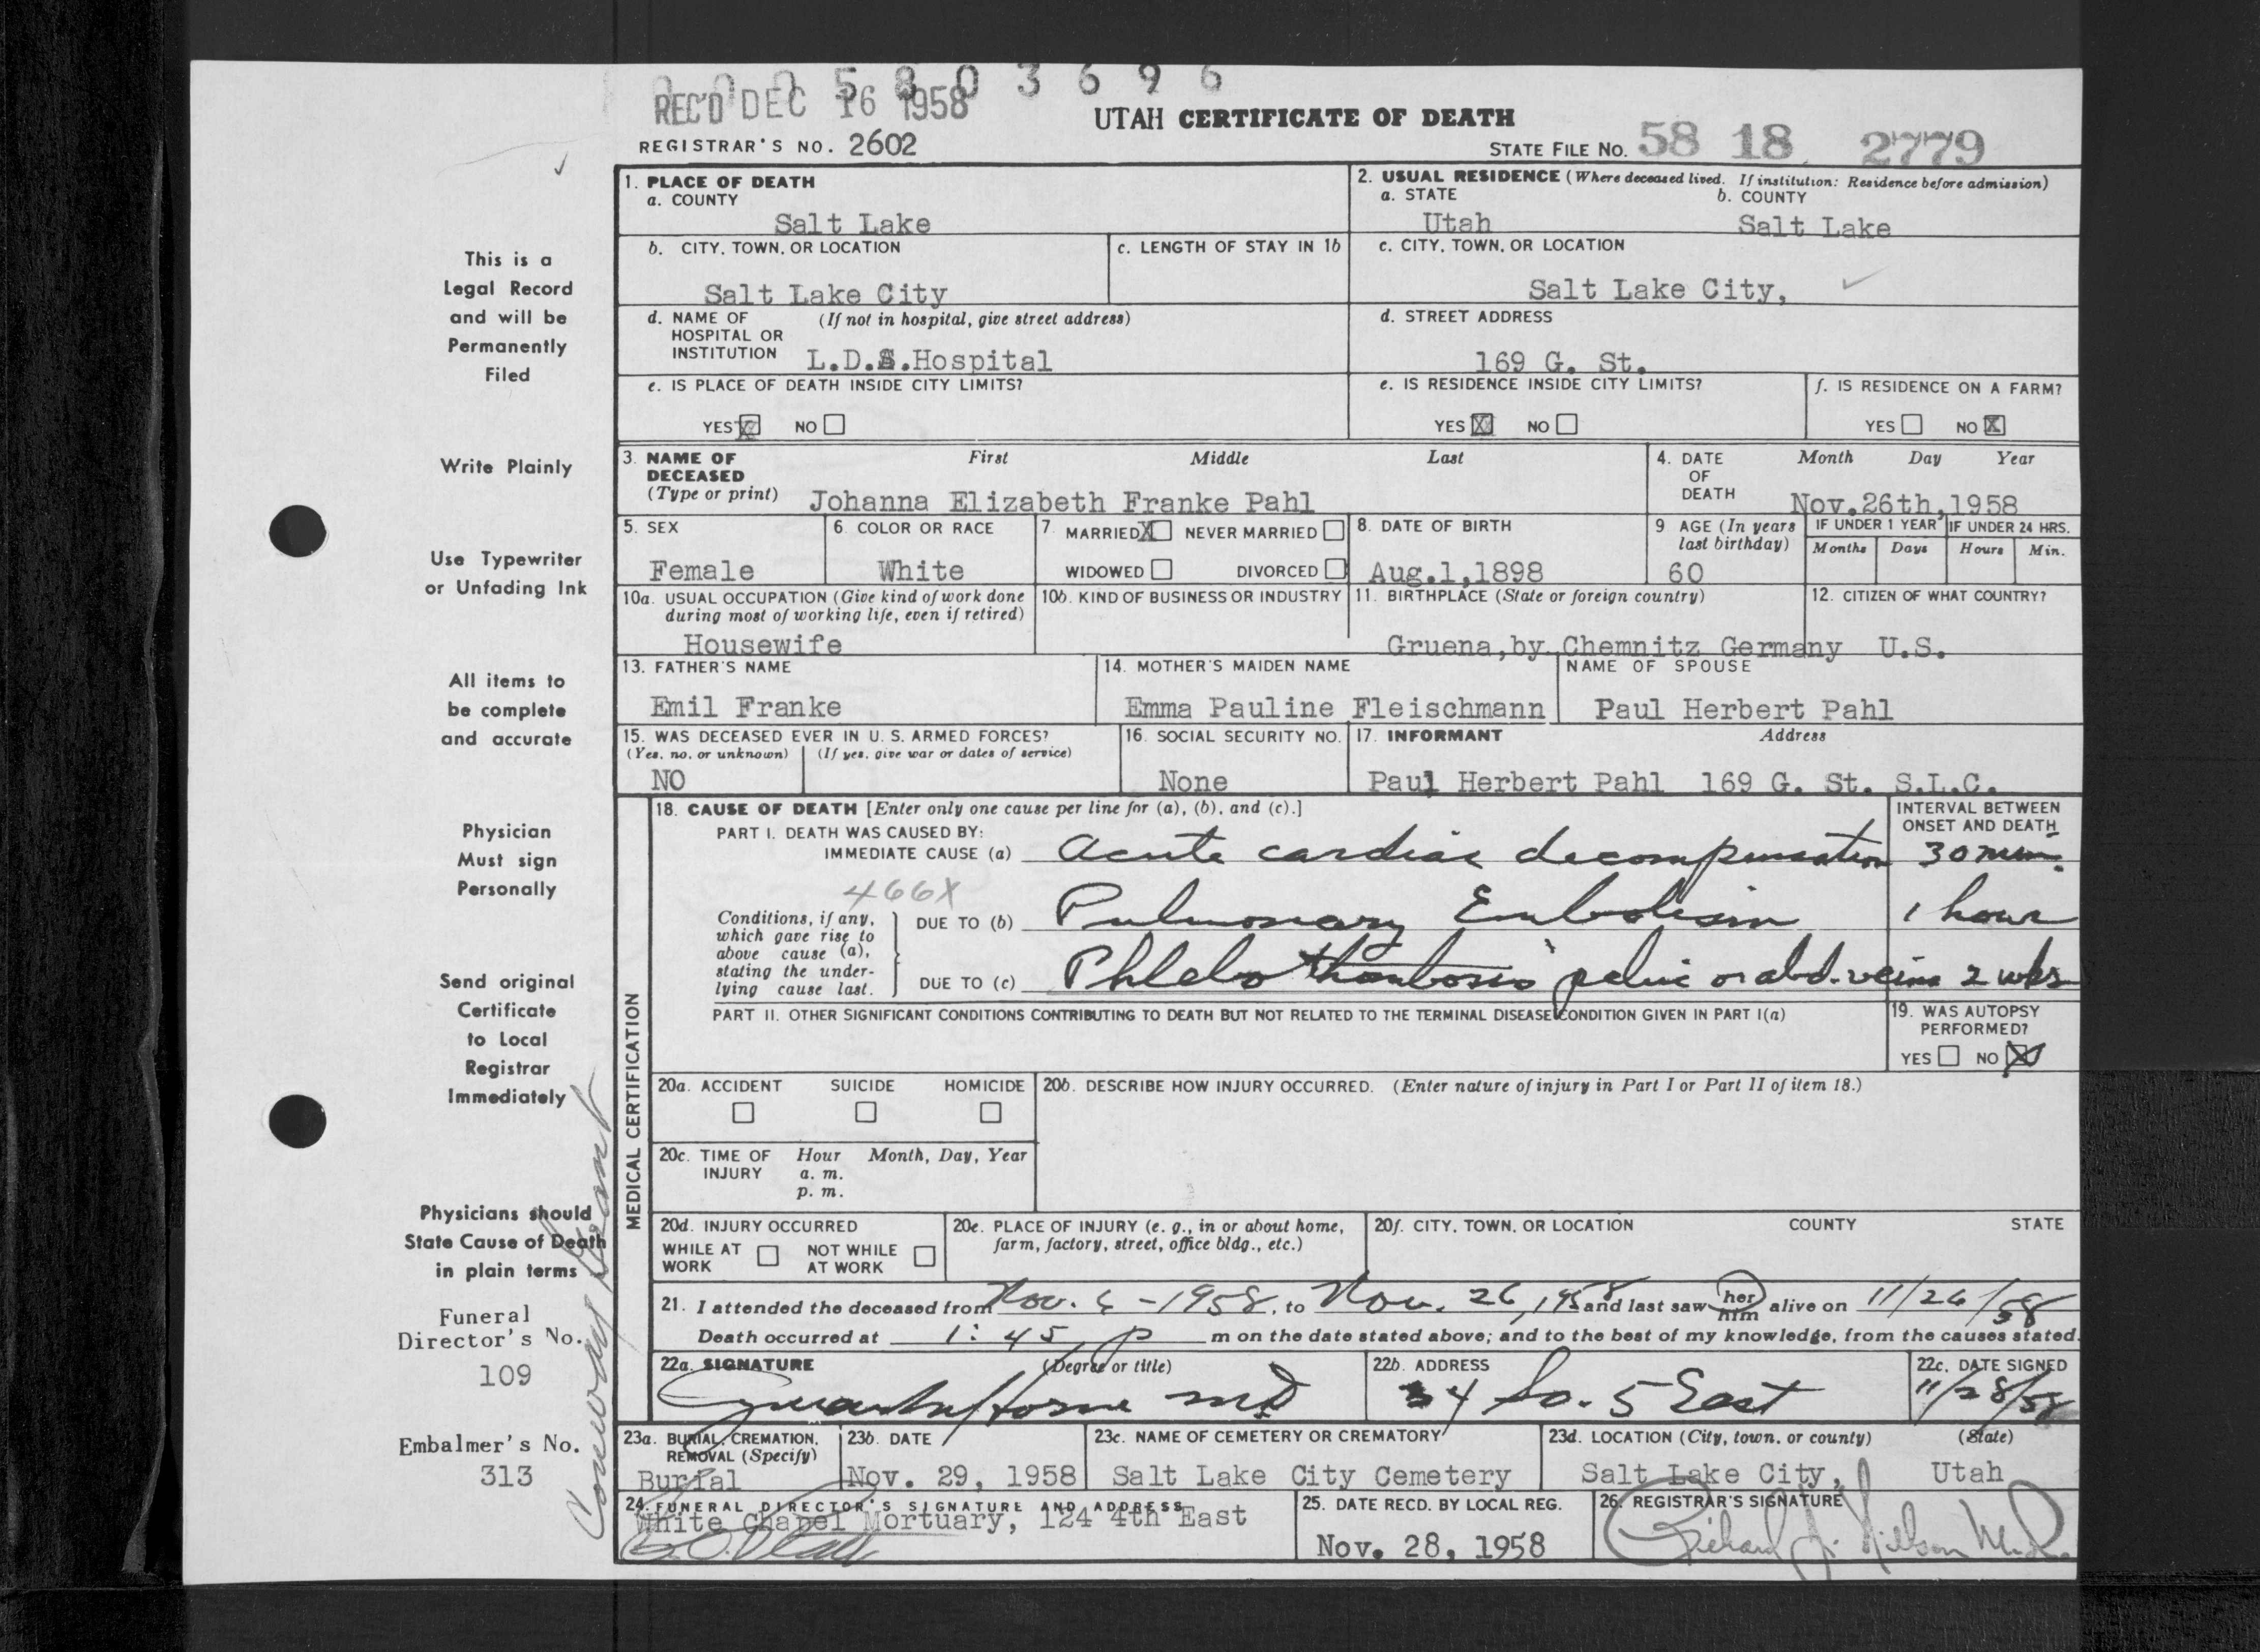 0 0 0 5 8 0 3 6 9 6
REC'D DEC 16 1958
UTAH CERTIFICATE OF DEATH
REGISTRAR'S NO. 2602
STATE FILE NO. 58 18 2779
1. PLACE OF DEATH
a. COUNTY
Salt Lake
2. USUAL RESIDENCE (Where deceased lived. If institution: Residence before admission)
a. STATE b. COUNTY
Utah Salt Lake
b. CITY, TOWN, OR LOCATION
Salt Lake City
c. LENGTH OF STAY IN 1b
c. CITY, TOWN, OR LOCATION
Salt Lake City,
d. NAME OF (If not in hospital, give street address)
HOSPITAL OR
INSTITUTION L.D.S.Hospital
d. STREET ADDRESS
169 G. St.
e. IS PLACE OF DEATH INSIDE CITY LIMITS?
YES X NO
e. IS RESIDENCE INSIDE CITY LIMITS?
YES X NO
f. IS RESIDENCE ON A FARM?
YES NO X
3. NAME OF First Middle Last
DECEASED
(Type or print) Johanna Elizabeth Franke Pahl
4. DATE Month Day Year
OF
DEATH Nov.26th,1958
5. SEX
Female
6. COLOR OR RACE
White
7. MARRIED X NEVER MARRIED
WIDOWED DIVORCED
8. DATE OF BIRTH
Aug.1,1898
9 AGE (In years
last birthday)
60
IF UNDER 1 YEAR IF UNDER 24 HRS.
Months Days Hours Min.
10a. USUAL OCCUPATION (Give kind of work done
during most of working life, even if retired)
Housewife
10b. KIND OF BUSINESS OR INDUSTRY
11. BIRTHPLACE (State or foreign country)
Gruena,by Chemnitz Germany
12. CITIZEN OF WHAT COUNTRY?
U.S.
13. FATHER'S NAME
Emil Franke
14. MOTHER'S MAIDEN NAME
Emma Pauline Fleischmann
NAME OF SPOUSE
Paul Herbert Pahl
15. WAS DECEASED EVER IN U. S. ARMED FORCES?
(Yes, no, or unknown) (If yes, give war or dates of service)
NO
16. SOCIAL SECURITY NO.
None
17. INFORMANT Address
Paul Herbert Pahl 169 G. St. S.L.C.
MEDICAL CERTIFICATION
18. CAUSE OF DEATH [Enter only one cause per line for (a), (b), and (c).]
INTERVAL BETWEEN
ONSET AND DEATH
PART I. DEATH WAS CAUSED BY:
IMMEDIATE CAUSE (a) Acute cardiac decompensation 30 min.
466X
Conditions, if any,
which gave rise to
above cause (a),
stating the under-
lying cause last.
DUE TO (b) Pulmonary Embolism 1 hour
DUE TO (c) Phlebo thombosis pelvic or abd. veins 2 wks
PART II. OTHER SIGNIFICANT CONDITIONS CONTRIBUTING TO DEATH BUT NOT RELATED TO THE TERMINAL DISEASE CONDITION GIVEN IN PART I(a)
19. WAS AUTOPSY
PERFORMED?
YES NO X
20a. ACCIDENT SUICIDE HOMICIDE
20b. DESCRIBE HOW INJURY OCCURRED. (Enter nature of injury in Part I or Part II of item 18.)
20c. TIME OF Hour Month, Day, Year
INJURY a. m.
p. m.
20d. INJURY OCCURRED
WHILE AT NOT WHILE
WORK AT WORK
20e. PLACE OF INJURY (e. g., in or about home,
farm, factory, street, office bldg., etc.)
20f. CITY, TOWN, OR LOCATION COUNTY STATE
21. I attended the deceased from Nov. 6 - 1958, to Nov. 26, 1958 and last saw her him alive on 11/26/58
Death occurred at 1:45 p m on the date stated above; and to the best of my knowledge, from the causes stated.
22a. SIGNATURE (Degree or title)
MD
22b. ADDRESS
34 So. 5 East
22c. DATE SIGNED
11/28/58
23a. BURIAL, CREMATION,
REMOVAL (Specify)
Burial
23b. DATE
Nov. 29, 1958
23c. NAME OF CEMETERY OR CREMATORY
Salt Lake City Cemetery
23d. LOCATION (City, town, or county) (State)
Salt Lake City, Utah
24. FUNERAL DIRECTOR'S SIGNATURE AND ADDRESS
White Chapel Mortuary, 124 4th East
25. DATE RECD. BY LOCAL REG.
Nov. 28, 1958
26. REGISTRAR'S SIGNATURE
Richard J. Nielson M.D.
This is a
Legal Record
and will be
Permanently
Filed
Write Plainly
Use Typewriter
or Unfading Ink
All items to
be complete
and accurate
Physician
Must sign
Personally
Send original
Certificate
to Local
Registrar
Immediately
Physicians should
State Cause of Death
in plain terms
Funeral
Director's No.
109
Embalmer's No.
313